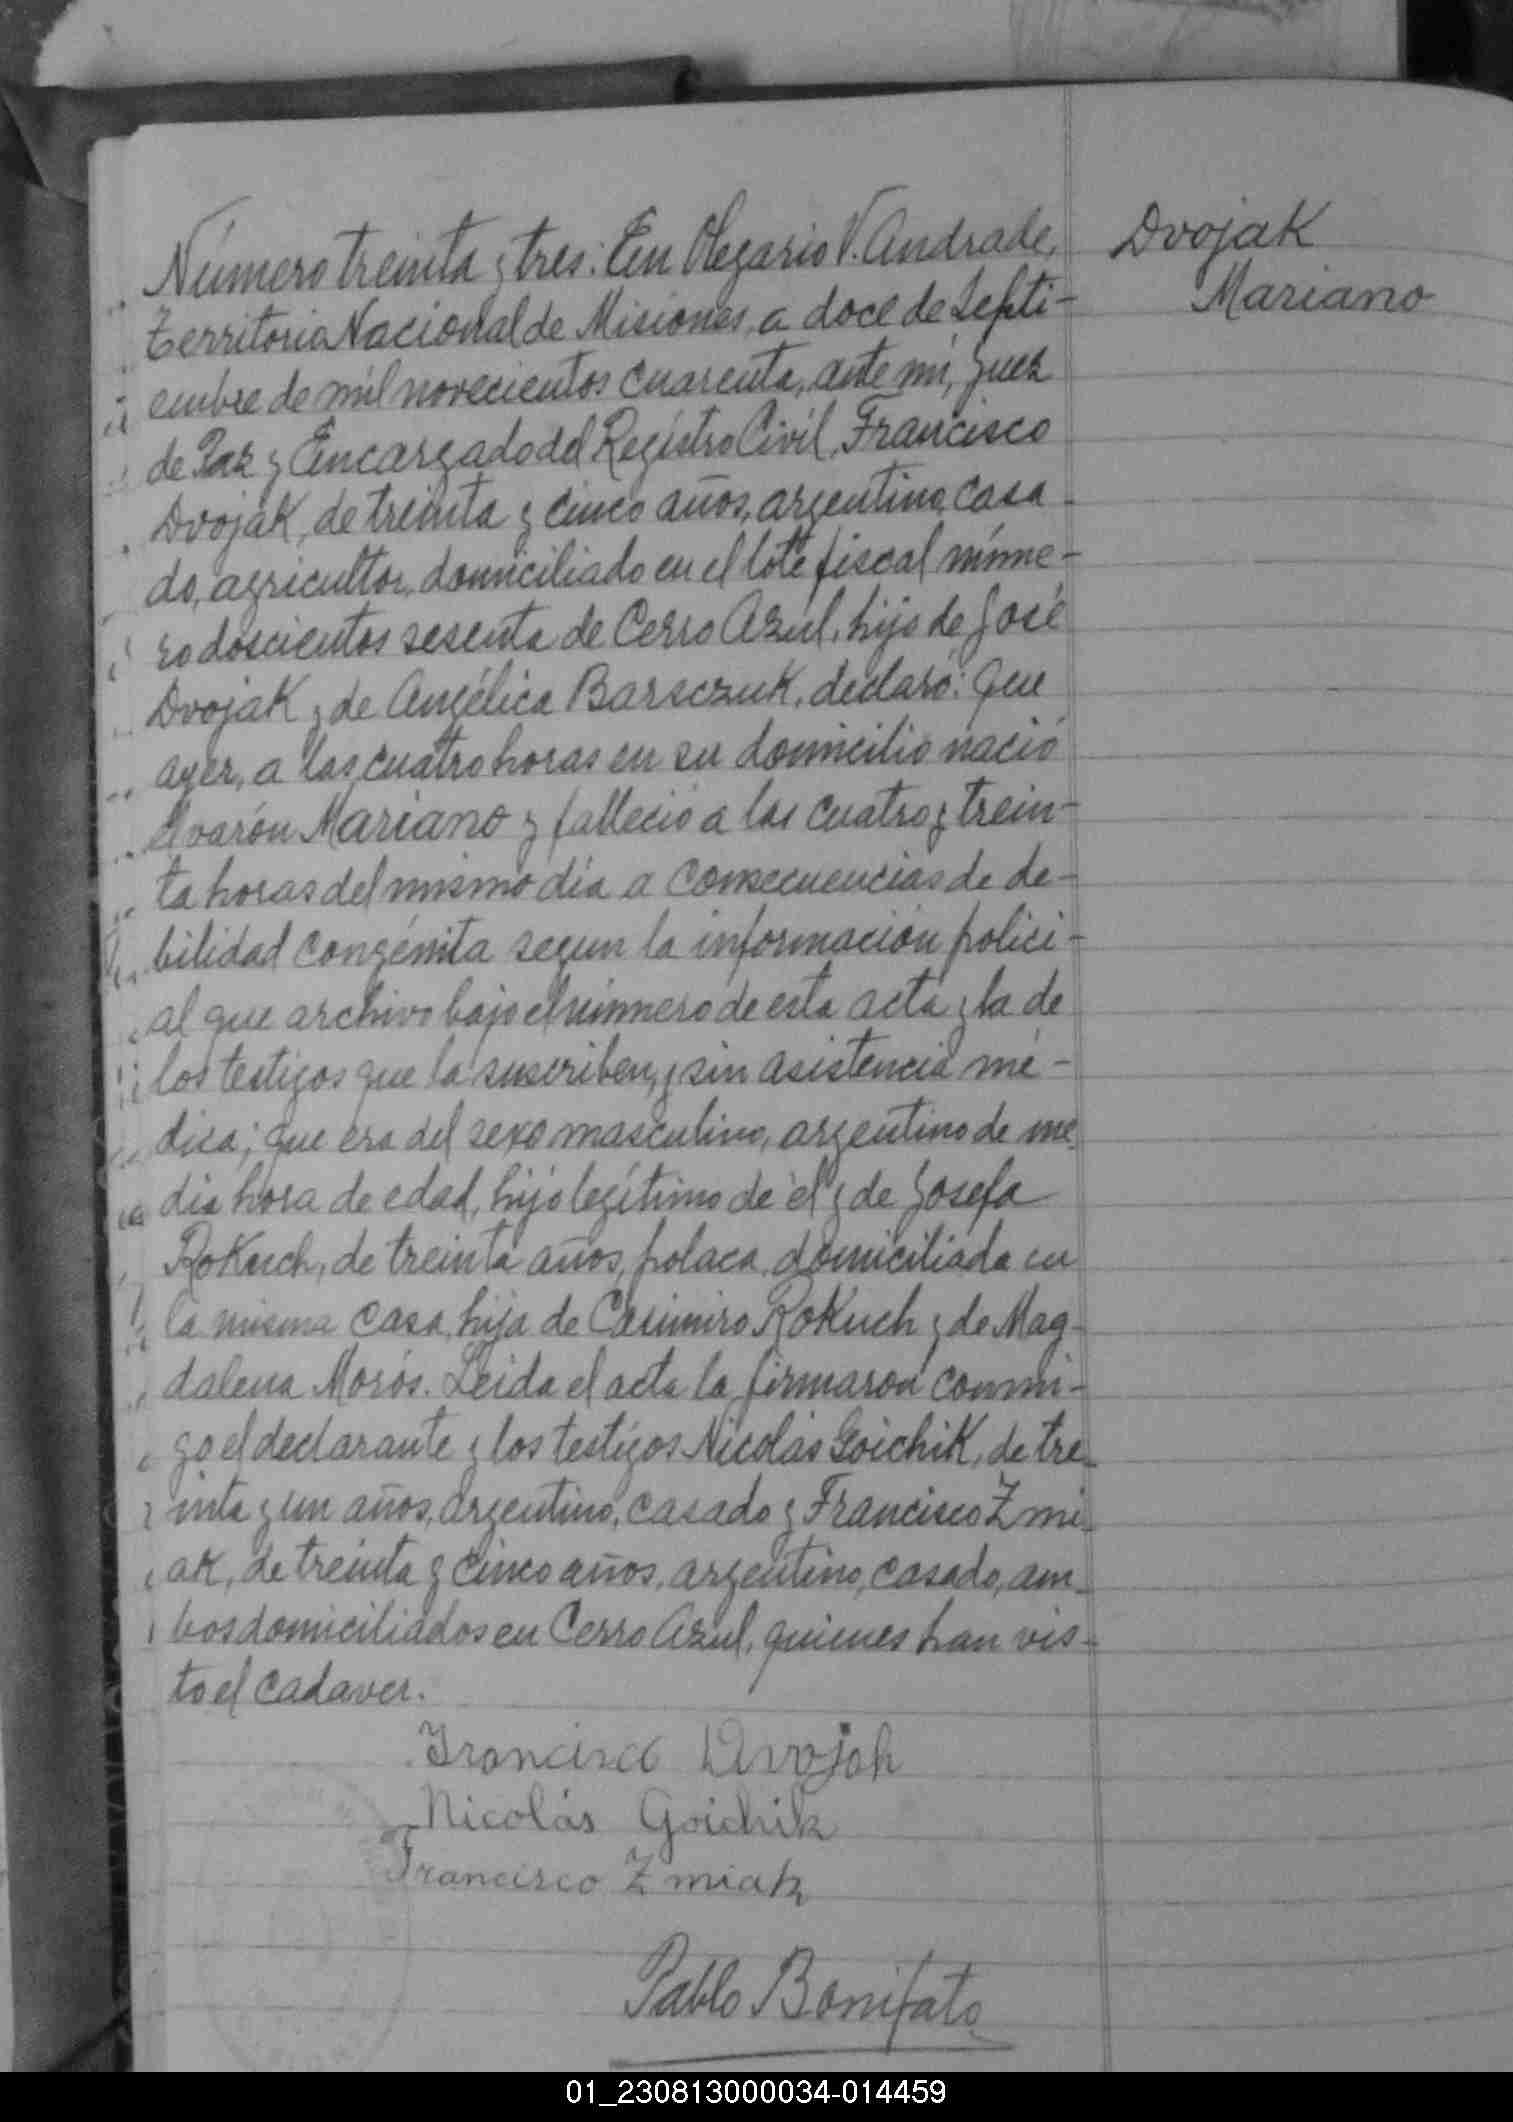 Dvojak
Mariano
Número treinta y tres: En Olegario V. Andrade,
Territorio Nacional de Misiones, a doce de Septi-
embre de mil novecientos cuarenta, ante mí, Juez
de Paz y Encargado del Registro Civil, Francisco
Dvojak, de treinta y cinco años, argentino, casa
do, agricultor, domiciliado en el lote fiscal núme-
ro doscientos sesenta de Cerro Azul, hijo de José
Dvojak y de Angélica Barsczuk, declaró: Que
ayer, a las cuatro horas en su domicilio nació
el varón Mariano y falleció a las cuatro y trein-
ta horas del mismo día a consecuencias de de-
bilidad congénita segun la información polici-
al que archivo bajo el número de esta acta y la de
los testigos que la suscriben, y sin asistencia mé-
dica; que era del sexo masculino, argentino de me
dia hora de edad, hijo legítimo de él y de Josefa
Rokuch, de treinta años, polaca, domiciliada en
la misma casa, hija de Casimiro Rokuch y de Mag-
dalena Morós. Leida el acta la firmaron conmi-
go el declarante y los testigos Nicolás Goichik, de tre-
inta y un años, argentino, casado y Francisco Zmi-
ak, de treinta y cinco años, argentino, casado, am-
bos domiciliados en Cerro Azul, quienes han vis-
to el cadaver.
Francisco Dvojak
Nicolás Goichik
Francisco Zmiak
Pablo Bonifato
01_230813000034-014459